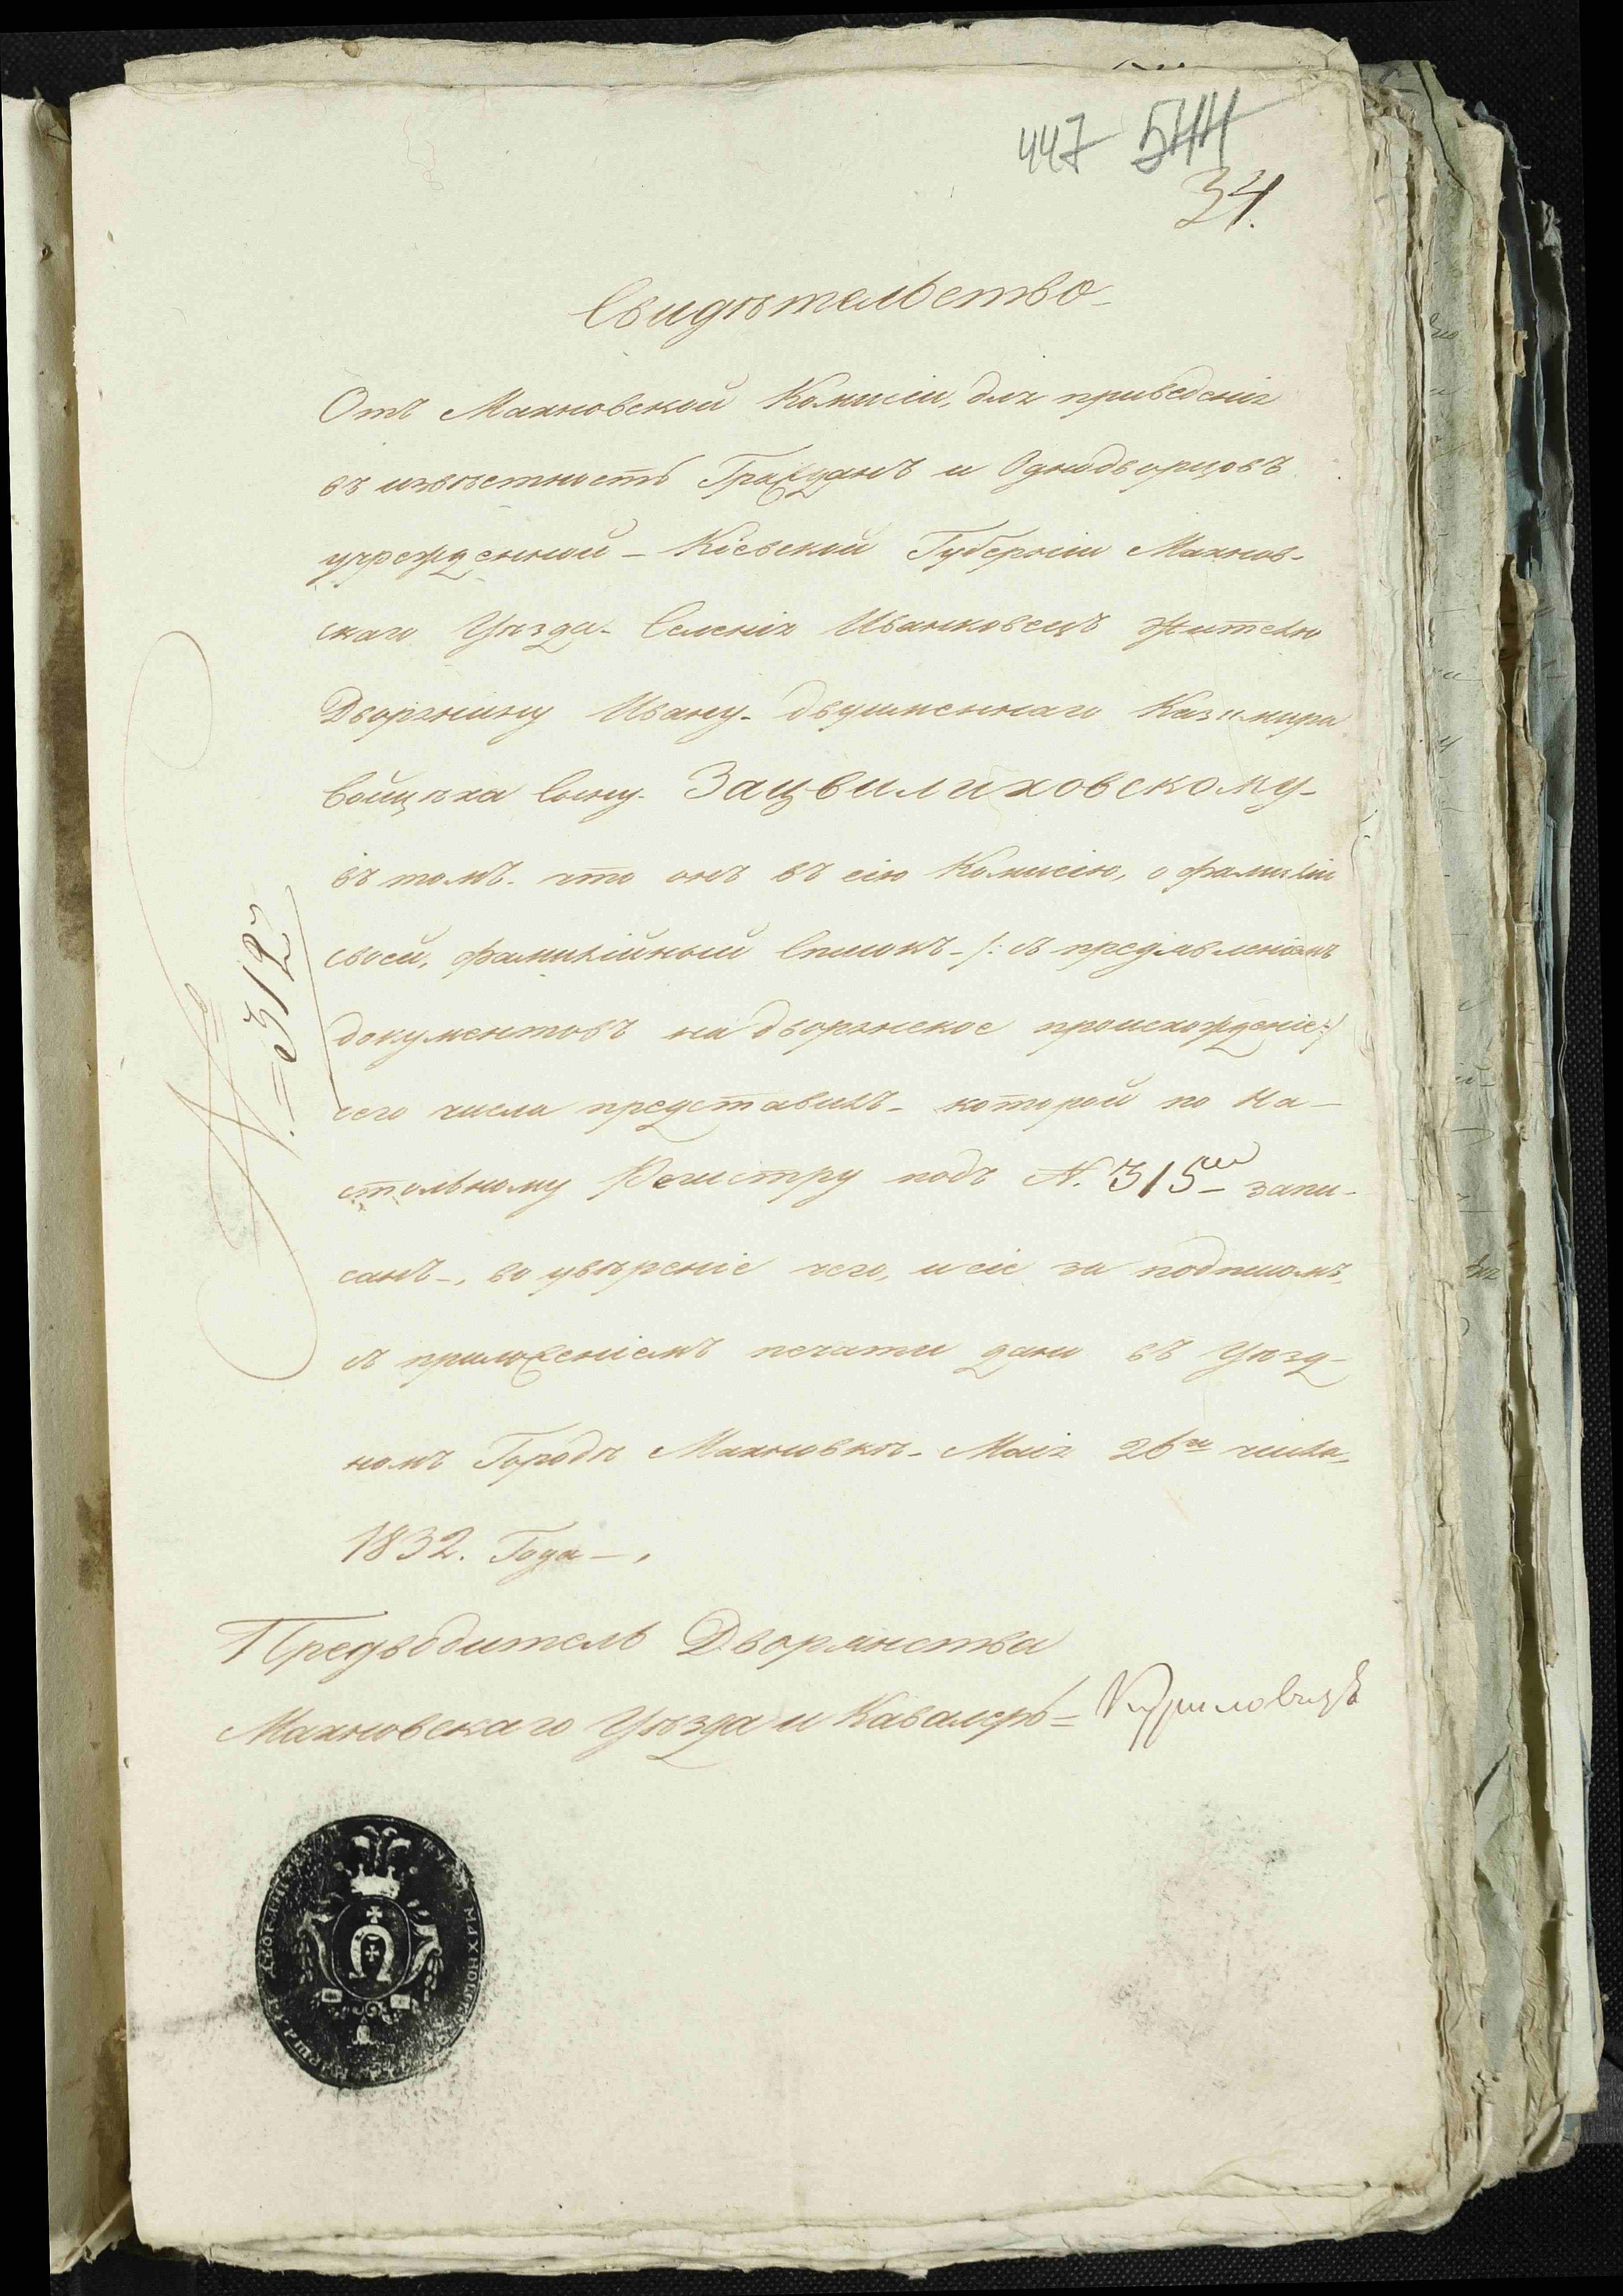 447 544
34.
Свидѣтельство
Отъ Махновской Комисіи, для приведенія
въ извѣстность Гражданъ и Однодворцовъ
учрежденной - Кіевской Губерніи Махнов-
скаго Уѣзда - Селенія Иванковецъ Жителю
Дворянину Ивану - двуименнаго Казимира
Войцѣха Сыну - Зацвилиховскому -
въ томъ - что онъ въ сію Комисію, о фамиліи
своей, фамилійный Списокъ - /: съ предъявленіемъ
документовъ на дворянское происхожденіе :/
сего числа представилъ - которой по На-
стольному Регистру подъ N. 315 запи-
санъ -, во увѣреніе чего, и сіе за подписомъ,
съ приложеніемъ печати дано въ Уѣзд-
номъ Городѣ Махновкѣ - Маія 26го числа,
1832. Года - .
N. = 312
Предводитель Дворянства
Махновскаго Уѣзда и Кавалеръ =